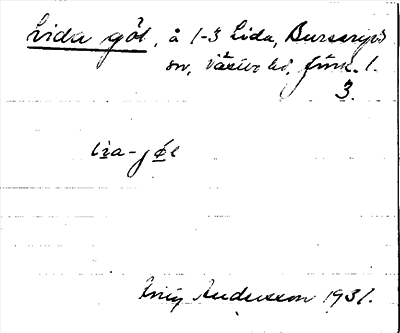 Lida göl, å 1-3 Lida, Burseryds
sn, Västbo hd, Jönk. l.
3.
lɩ̱a-jø̱l
Andersson 1931.